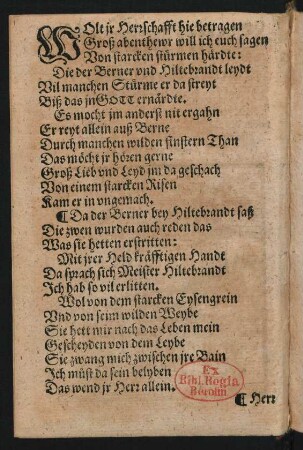 WOlt jr Herrschafft hie betragen
Groß abenthewr will ich euch sagen
Von starcken stürmen härdte:
Die der Berner vnd Hiltebrandt leydt
Vil manchen Stürme er da streyt
Biß das jn GOTT ernärdie.
Es mocht jm anderst nit ergahn
Er reyt allein auß Berne
Durch manchen wilden finstern Than
Das möcht jr hören gerne
Groß Lieb vnd Leyd jm da geschach
Von einem starcken Risen
Kam er in vngemach.
¶ Da der Berner bey Hiltebrandt saß
Die zwen wurden auch reden das
Was sie hetten erstritten:
Mit jrer Held kräfftigen Handt
Da sprach sich Meister Hiltebrandt
Ich hab so vil erlitten.
Wol von dem starcken Eysengrein
Vnd von seim wilden Weybe
Sie hett mir nach das Leben mein
Gescheyden von dem Leybe
Sie zwang mich zwischen jre Bain
Ich müst da sein belyben
Das wend jr Herr allein.
Ex
Bibl. Regia
Berolin.
¶ Herr